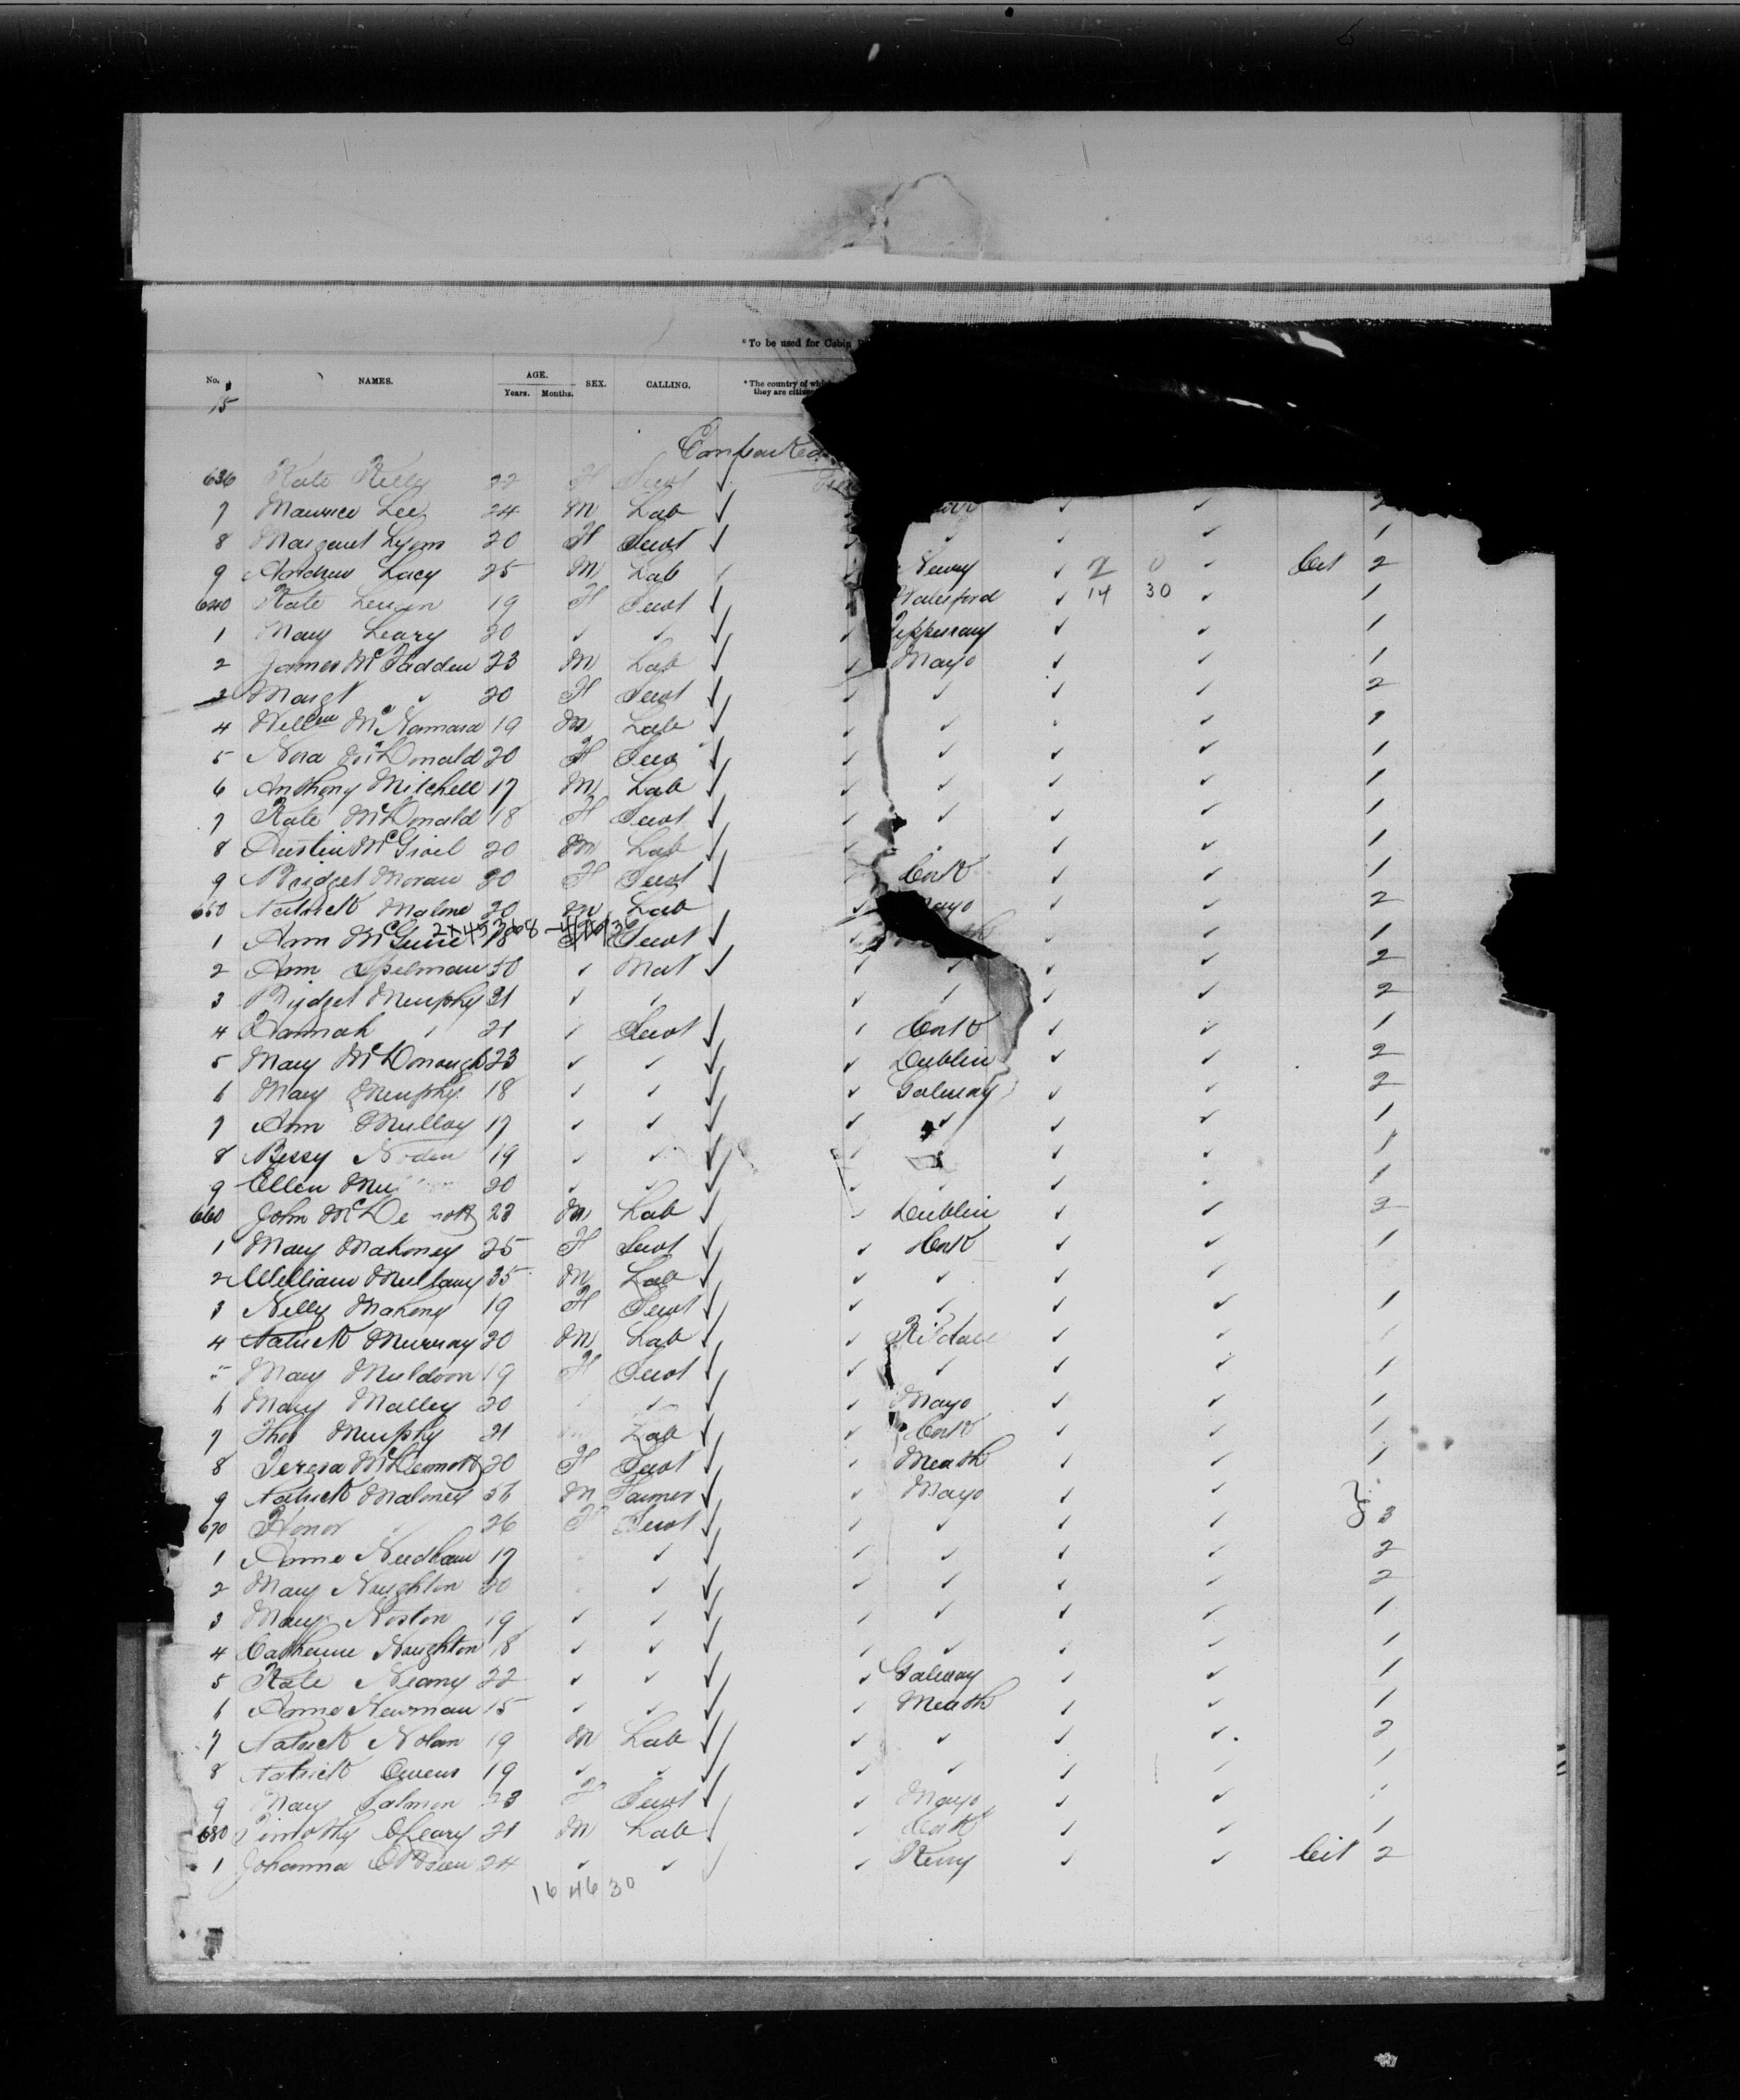 * To be used for Cabin P
No. NAMES. AGE. SEX. CALLING. * The country of whi
Years. Months. they are citize
15
636 Kate Kelly 22 F Servt ✓
7 Maurice Lee 24 M Lab ✓ ✓ ✓ 2
8 Margaret Lyons 20 F Servt ✓ ✓ ✓ ✓ ✓ 1
9 Andrew Lacy 25 M Lab ✓ ✓ Newry ✓ 2 0 ✓ Cit 2
640 Kate 19 F Servt ✓ ✓ Waterford ✓ 14 30 ✓ 1
1 Mary Leary 20 ✓ ✓ ✓ ✓ Tipperary ✓ ✓ 1
2 James McFadden 23 M Lab ✓ ✓ Mayo ✓ ✓ 1
3 Margt ✓ 20 F Servt ✓ ✓ ✓ ✓ ✓ 2
4 Willm McNamara 19 M Lab ✓ ✓ ✓ ✓ 1
5 Nora McDonald 20 F Serv ✓ ✓ ✓ ✓ ✓ 1
6 Anthony Mitchell 17 M Lab ✓ ✓ ✓ ✓ ✓ 1
7 Kate McDonald 18 F Servt ✓ ✓ ✓ ✓ ✓ 1
8 Austin 20 M Lab ✓ ✓ ✓ ✓ 1
9 Bridget Moran 20 F Servt ✓ Cork ✓ ✓ 1
650 Patrick Malone 20 M Lab ✓ Mayo ✓ ✓ 2
1 Ann McGuire 18 F Servt ✓ ✓ ✓ ✓ 1
2 Ann Spelman 50 ✓ Mat ✓ ✓ ✓ ✓ ✓ 2
3 Bridget Murphy 31 ✓ ✓ ✓ ✓ ✓ ✓ 2
4 Hannah ✓ 21 ✓ Servt ✓ ✓ Cork ✓ ✓ 1
5 Mary McDonough 23 ✓ ✓ ✓ ✓ Dublin ✓ ✓ 2
6 Mary Murphy 18 ✓ ✓ ✓ ✓ Galway ✓ ✓ 2
7 Ann Mulloy 17 ✓ ✓ ✓ ✓ ✓ ✓ ✓ 1
8 Bessy 19 ✓ ✓ ✓ ✓ ✓ ✓ 1
9 Ellen 20 ✓ ✓ ✓ ✓ ✓ ✓ 1
660 John McDermott 23 M Lab ✓ ✓ Dublin ✓ ✓ 2
1 Mary Mahoney 25 F Servt ✓ ✓ Cork ✓ ✓ 1
2 William Mullany 35 M Lab ✓ ✓ ✓ ✓ ✓
3 Nelly Mahony 19 F Servt ✓ ✓ ✓ ✓ ✓ 1
4 Patrick Murray 20 M Lab ✓ ✓ Kildare ✓ ✓ 1
5 Mary Muldoon 19 F Servt ✓ ✓ ✓ ✓ ✓ 1
6 Mary Malley 20 ✓ ✓ ✓ Mayo ✓ ✓ 1
7 Thos Murphy 21 Lab ✓ ✓ Cork ✓ ✓ 1
8 Teresa McDermott 20 F Servt ✓ ✓ Meath ✓ ✓ 1
9 Patrick Maloney M Farmer ✓ ✓ Mayo ✓ ✓
670 Honor 26 F Servt ✓ ✓ ✓ ✓ ✓ 3
1 Anne Needham 17 ✓ ✓ ✓ ✓ ✓ ✓ 2
2 Mary Naughton 20 ✓ ✓ ✓ ✓ ✓ ✓ 2
3 Mary Noston 19 ✓ ✓ ✓ ✓ ✓ ✓ ✓ 1
4 Catherine Naughton 18 ✓ ✓ ✓ ✓ ✓ ✓ ✓ 1
5 Kate Neany 22 ✓ ✓ ✓ ✓ Galway ✓ ✓ 1
6 Anne Newman 15 ✓ ✓ ✓ ✓ Meath ✓ ✓ 1
7 Patrick Nolan 19 M Lab ✓ ✓ ✓ ✓ ✓ 2
8 Patrick Owens 19 ✓ ✓ ✓ ✓ ✓ ✓ ✓ 1
9 Mary Salmon 23 F Servt ✓ ✓ Mayo ✓ ✓
680 Timothy OLeary 21 M Lab ✓ ✓ Cork ✓ ✓ 1
1 Johanna OBrien 24 ✓ ✓ ✓ ✓ Kerry ✓ ✓ Cit 2
16 46 30